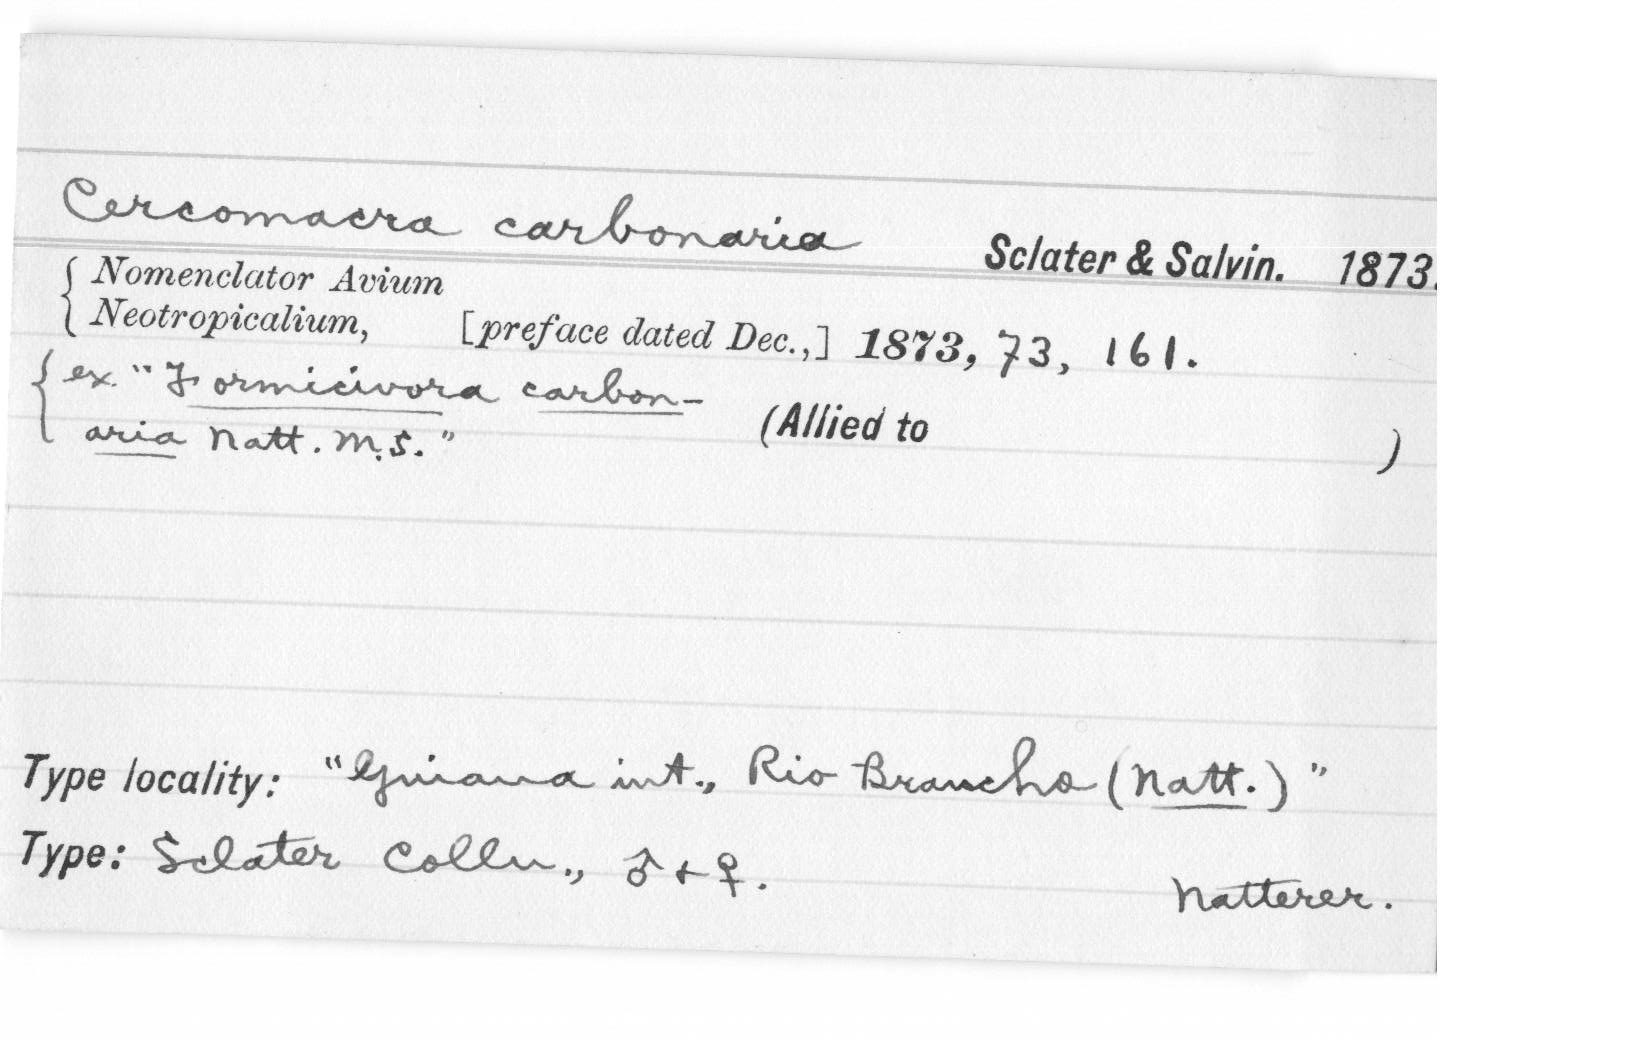 Cercomacra carbonaria Sclater & Salvin. 1873.
{ Nomenclator Avium
Neotropicalium, [preface dated Dec.,] 1873, 73, 161.
{ ex. "Formicivora carbon-
aria Natt. M.S." (Allied to )
Type locality: "Guiana int., Rio Brancho (Natt.)"
Type: Sclater Colln., ♂ + ♀.
Natterer.